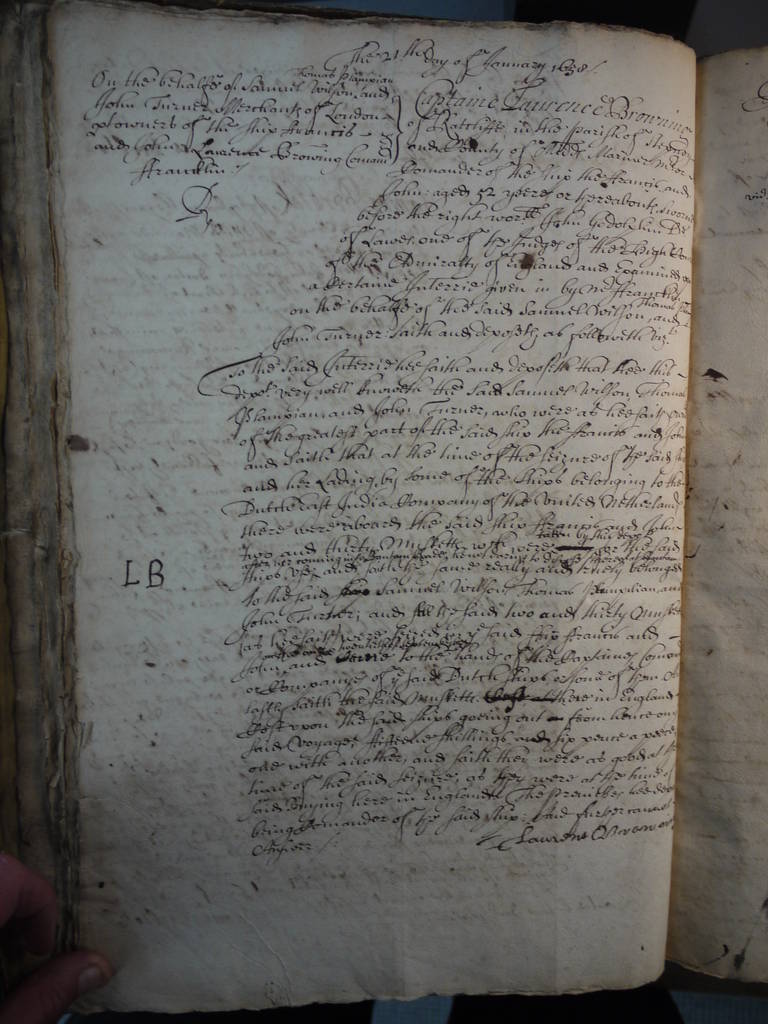 The 21th day of January 1658
On the behalfe of Samuel Wilson, Thomas Plampian and
John Turner Merchants of London
owners of the ship Francis
and John Lawrence Browning Comand
Francklin
Captaine Lawrence Browning
of Ratcliffe in the parish of
and County of Midd Mariner
Comander of the ship the Francis and
John aged 52 yeeres or thereabouts sworne
before the right worll John Godolphin Dr
of Lawes one of the Judges of the high Court
of the Admiralty of England and Examined
a certaine Interrie given in by Mr Francklin
on the behalfe of the said Samuel Wilson, Thomas and
John Turner saith and deposeth as followeth vizt
To the said Interrie hee saith and deposeth that hee this
dept very well knoweth the said Samuel Wilson Thomas
Plampian and John Turner, who were as hee saith
of the greatest part of the said ship the Francis and John
and saith that at the time of the seizure of the said ship
and her Lading, by some of the ships belonging to the
Dutch East India Company of the United Netherlands
there were aboard the said ship Francis and John
two and thirty Musketts wch were taken by this dept for the said
ships use, and saith the same really and truely belonged
to the said Samuel Wilson Thomas Plampian and
John Turner; and the said two and thirty Musketts
as hee saith were seized in ye said ship Francis and
John and to the hands of the Captaines
or Companye of ye said Dutch ships or some of them
lastly saith the said Musketts there in England
Cost upon the said ships going out from hence on
said Voyage fifteene shillings and six pence a peece
one with another, and saith they were as good at the
time of the said seizure, as they were at the time of
said buying here in England The premisses hee
being Comander of the said ship: And further cannot
Answer
LB